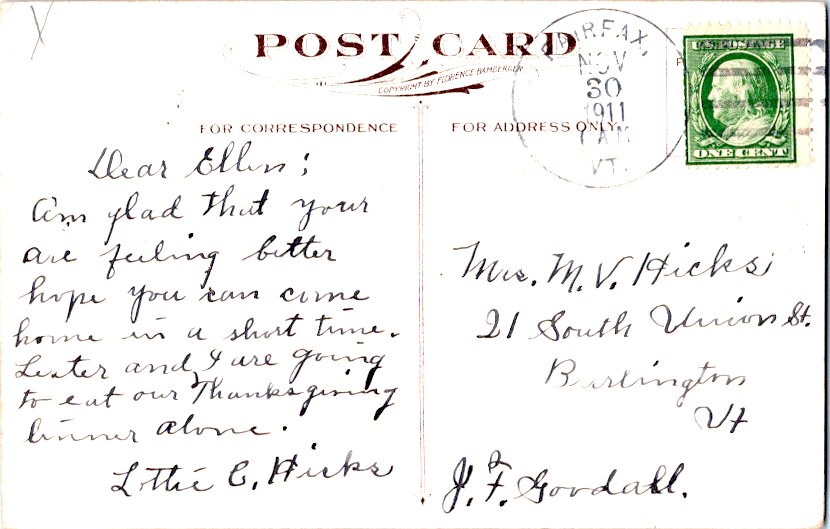 POST CARD
COPYRIGHT BY FLORENCE BAMBERGER
FAIRFAX,
NOV
30
1911
AM
VT.
U.S. POSTAGE
ONE CENT
FOR CORRESPONDENCE
FOR ADDRESS ONLY
Dear Ellen;
Am glad that your
are feeling better
hope you can come
home in a short time.
Lester and I are going
to eat our Thanksgiving
dinner alone.
Lottie C. Hicks
Mrs. M. V. Hicks
21 South Union St.
Burlington
Vt
J. F. Goodall.